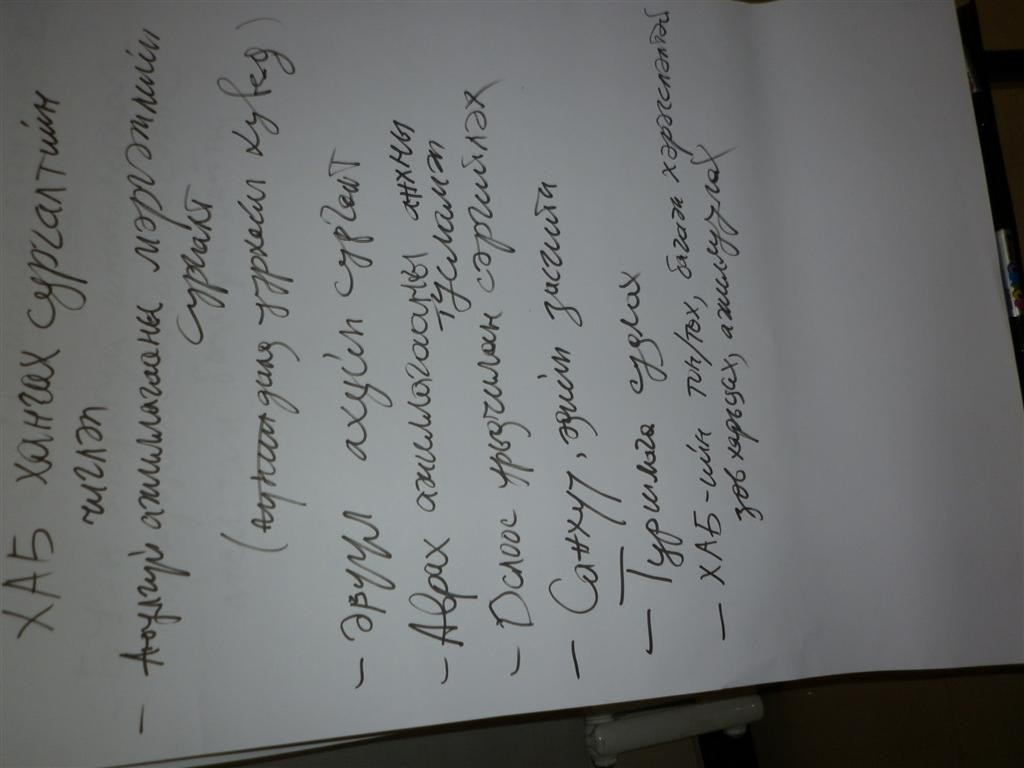 ХАБ хангах сургалтын
чиглэл
- Аюулгүй ажиллагааны мэргэжлийн
сургалт
(давтан уурхай хувед)
- эрүүл ахуйн сургалт
- Аврах ажиллагааны анхны
тусламж
- ОсLoос урьдчилан сэргийлэх
- Санхүү, эдийн засгийн
- Туршлага судлах
- ХАБ-ийн тоног төх, багаж хэрэгсэлтэй
зөв харьцах, ажиллуулах